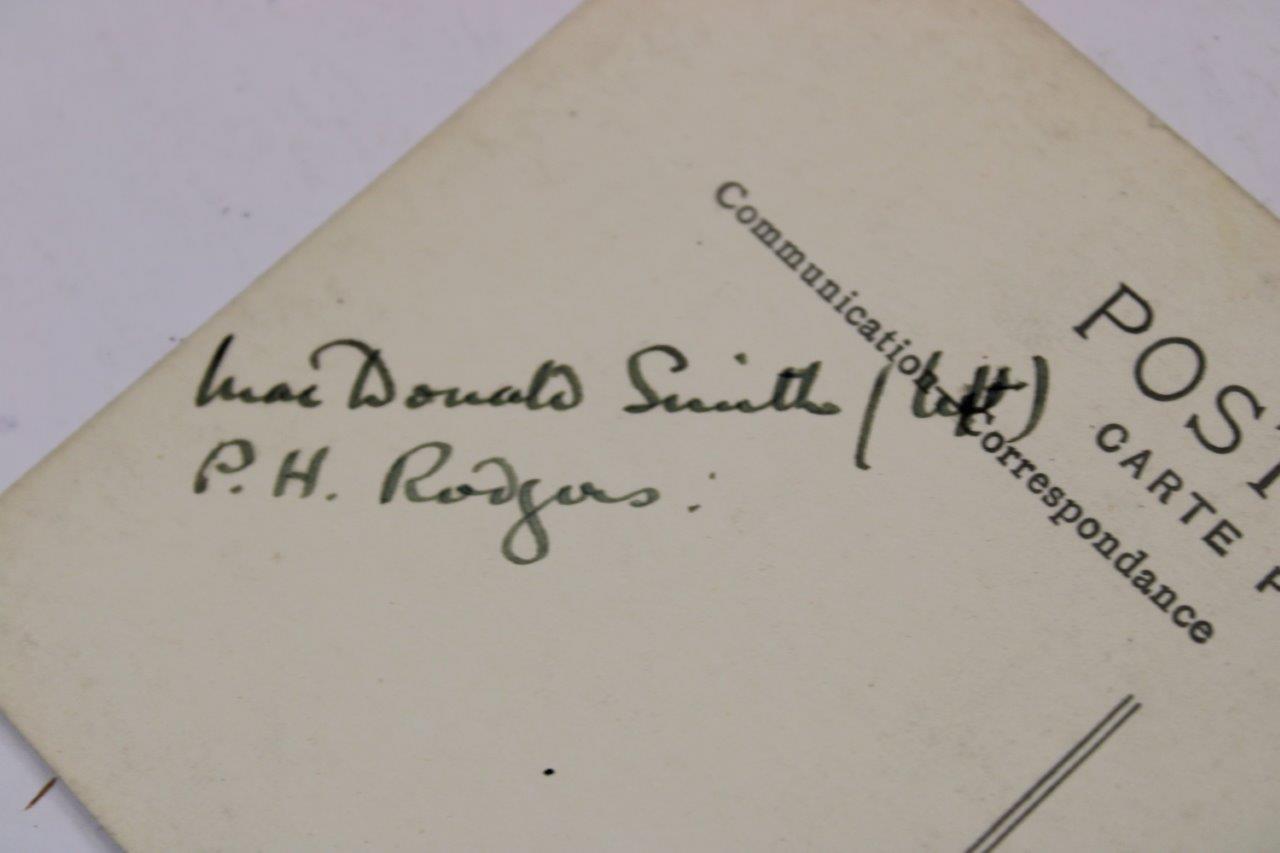 MacDonald Smith (left)
P. H. Rodgers.
Communication, Correspondance
POST
CARTE P